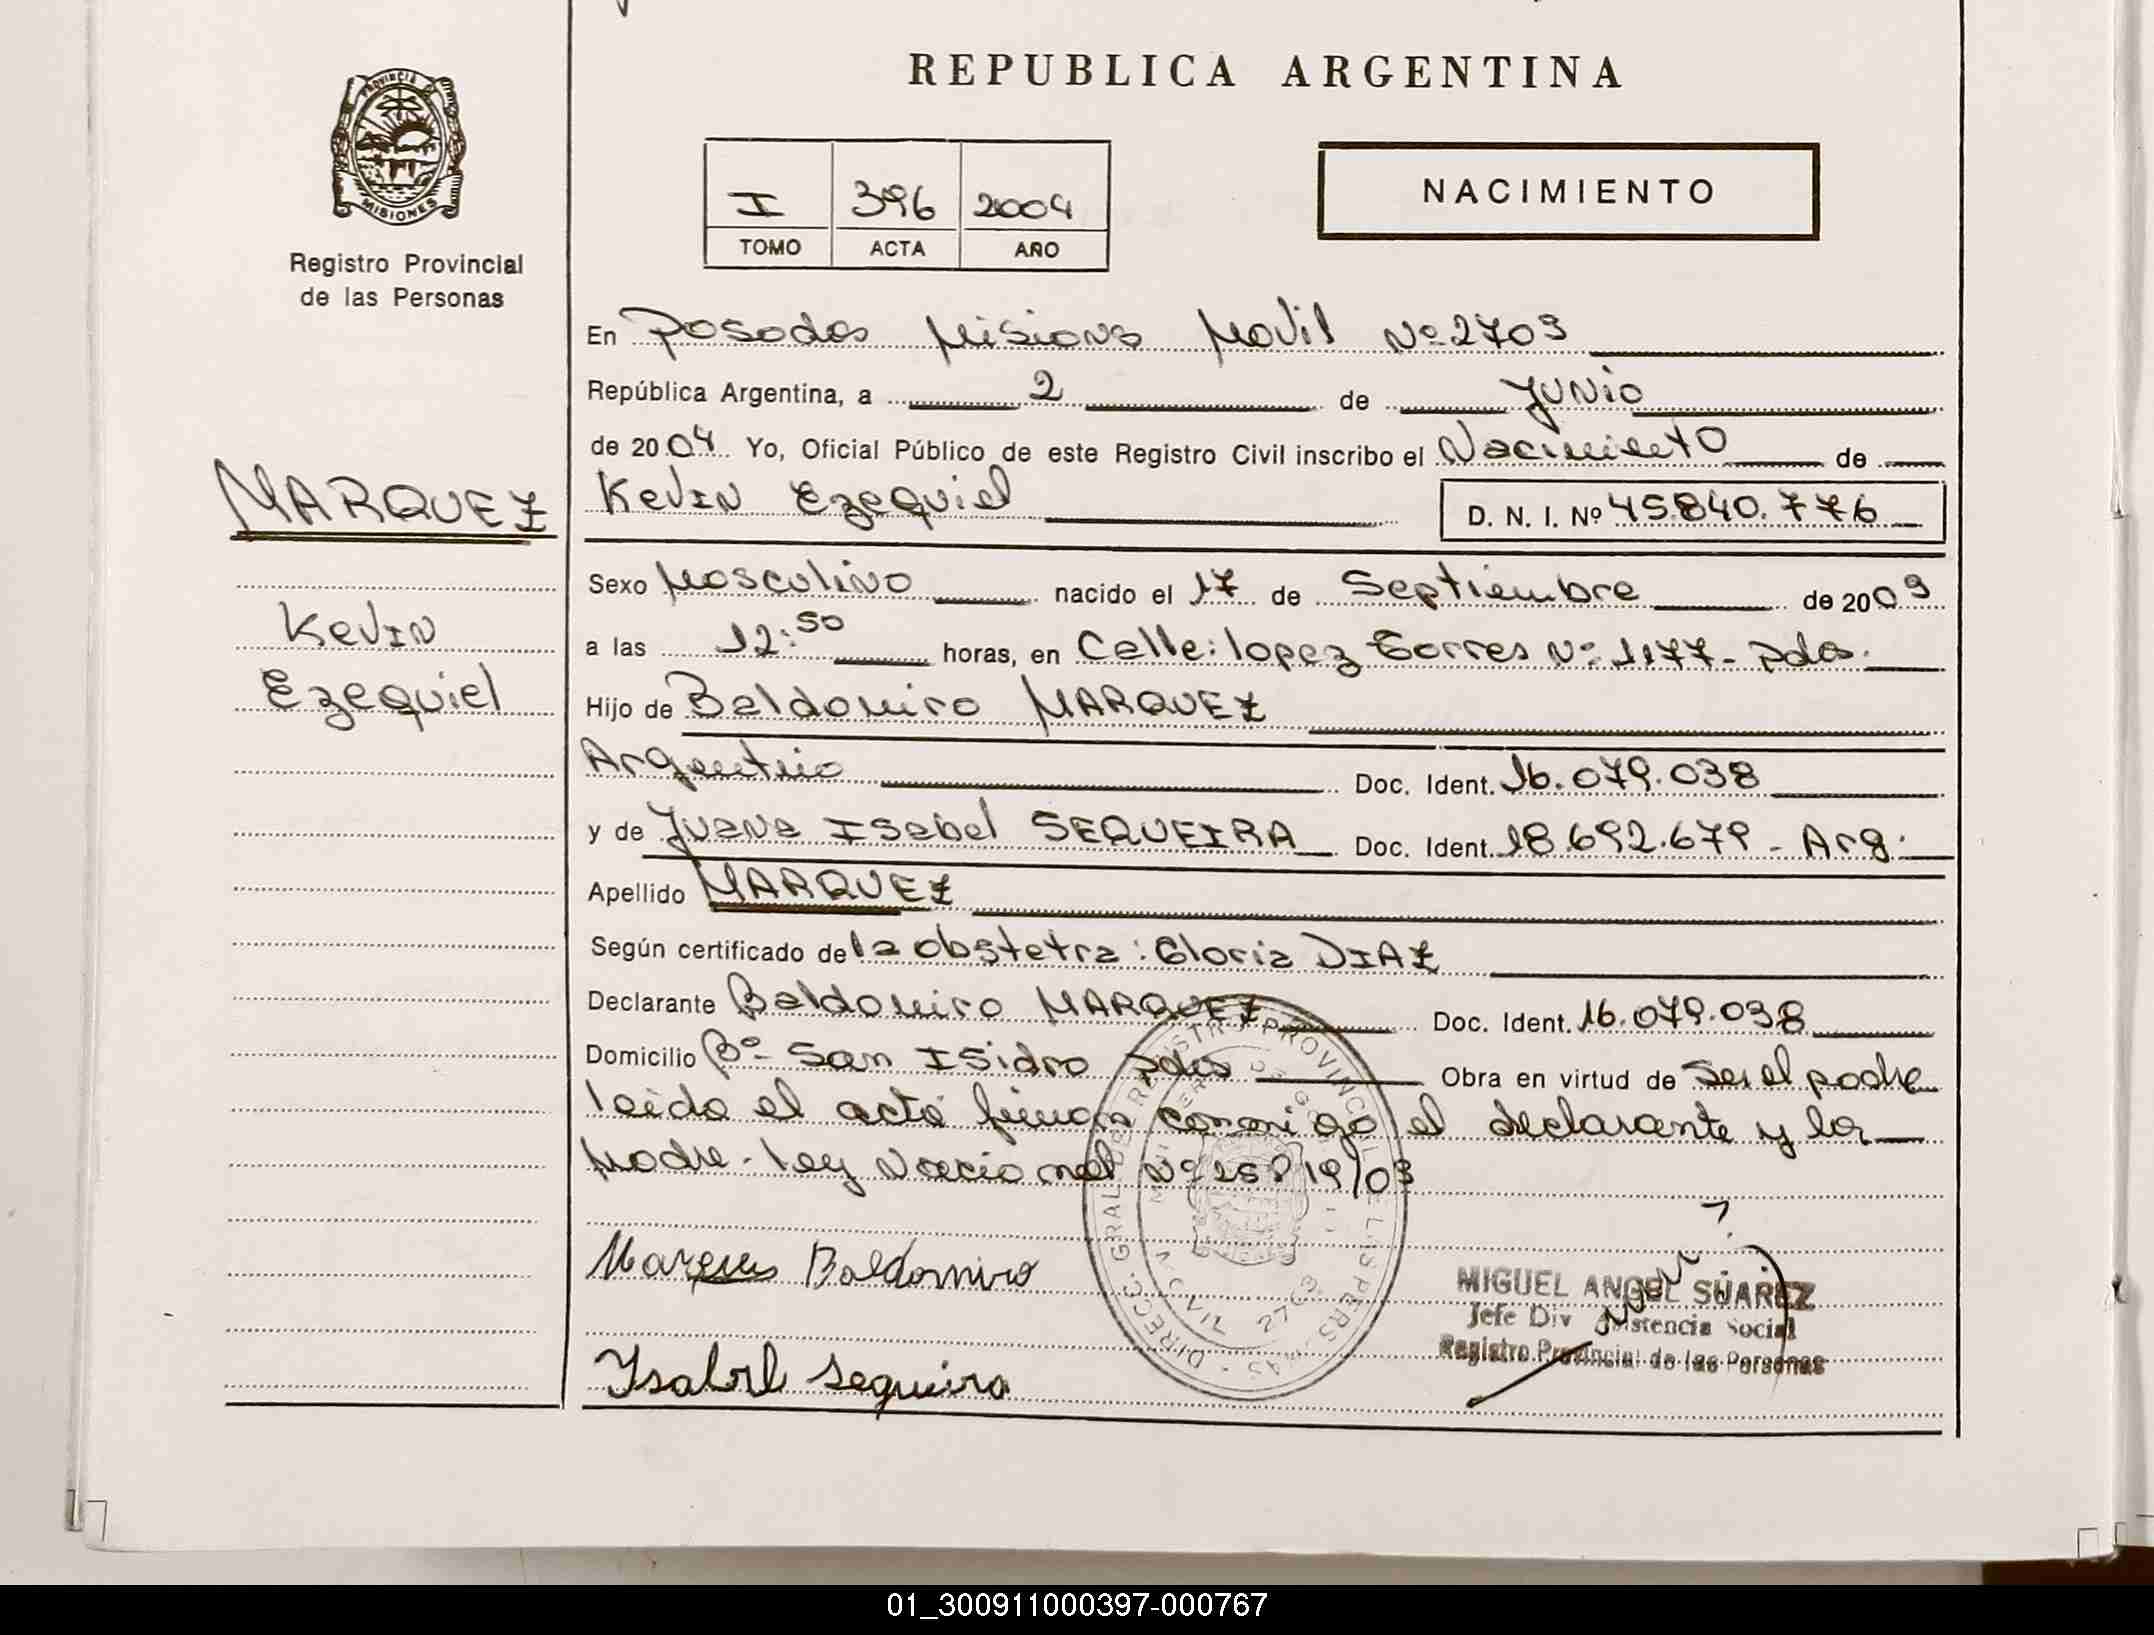 REPUBLICA ARGENTINA
PROVINCIA DE
MISIONES
Registro Provincial
de las Personas
I 396 2004
TOMO ACTA AÑO
NACIMIENTO
En Posadas Misiones Movil Nº 2703
República Argentina, a 2 de Junio
de 2004 Yo, Oficial Público de este Registro Civil inscribo el Nacimiento de
MARQUEZ
Kevin Ezequiel D. N. I. Nº 45.840.776
Sexo Masculino nacido el 17 de Septiembre de 2003
Kevin
Ezequiel
a las 12:50 horas, en Calle: lopez Torres Nº 1177- pdas.
Hijo de Baldomiro MARQUEZ
Argentino Doc. Ident. 16.079.038
y de Juana Isabel SEQUEIRA Doc. Ident. 18.692.679 - Arg.
Apellido MARQUEZ
Según certificado de la obstetra: Gloria DIAZ
Declarante Baldomiro MARQUEZ Doc. Ident. 16.079.038
Domicilio Bº San Isidro pdas Obra en virtud de ser el padre
leido el acta firman conmigo el declarante y la
Madre - ley Nacional Nº 25819/03
DIRECC. GRAL. DE REGISTRO PROVINCIAL DE LAS PERSONAS
MOVIL 2703
Marques Baldomiro
MIGUEL ANGEL SUAREZ
Jefe Div Asistencia Social
Registro Provincial de las Personas
Isabel Sequeira
01_300911000397-000767